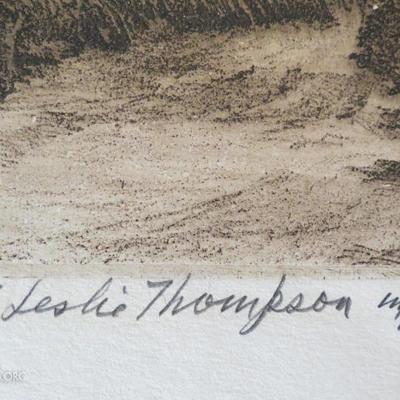 Leslie Thompson
.ORG